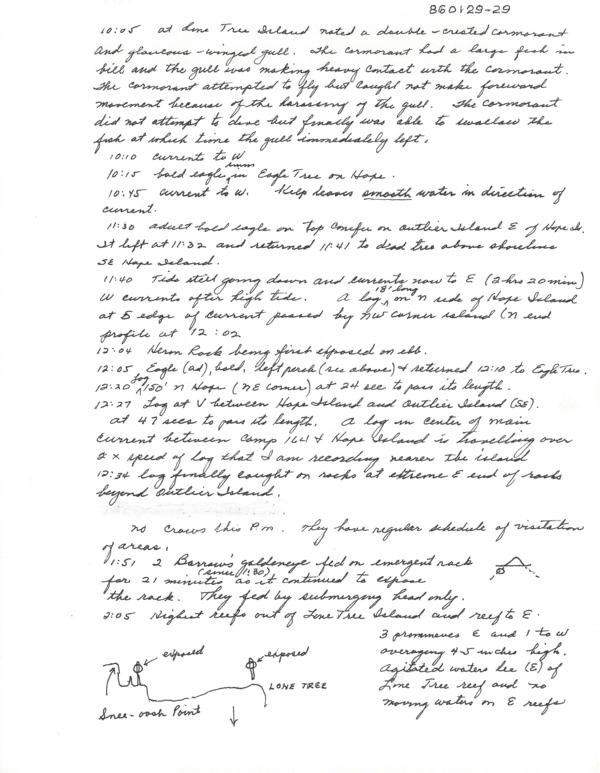 860129-29
10:05 at Lone Tree Island noted a double-created cormorant
and glaucous-winged gull. The cormorant had a large fish in
bill and the gull was making heavy contact with the cormorant.
The cormorant attempted to fly but could not make foreward
movement because of the harassing of the gull. The cormorant
did not attempt to dive but finally was able to swallow the
fish at which time the gull immediately left.
10:10 currents to W
10:15 bald eagle, imm in Eagle Tree on Hope.
10:45 current to W. Kelp leaves smooth water in direction of
current.
11:30 adult bald eagle on top conifer on Outlier Island E of Hope Is.
It left at 11:32 and returned 11:41 to dead tree above shoreline
SE Hope Island.
11:40 Tide still going down and currents now to E (2 hrs 20 min)
W currents after high tide. A log 18' long on N side of Hope Island
at E edge of current passed by NW corner island (N end
profile at 12:02
12:04 Heron Rock being first exposed on ebb.
12:05 Eagle (ad), bald, left perch (see above) & returned 12:10 to Eagle Tree.
12:20 log 150' N Hope (NE corner) at 24 sec to pass its length.
12:27 Log at V between Hope Island and Outlier Island (SE).
at 47 secs to pass its length. A log in center of main
current between Camp & Hope Island is travelling over
2 x speed of log that I am recording nearer the island
12:34 log finally caught on rocks at extreme E end of rocks
beyond Outlier Island.
No crows this P.m. They have regular schedule of visitation
of areas.
1:51 2 Barrow's goldeneye fed on emergent rock
for 21 minutes (since 1:30) as it continued to expose
the rock. They fed by submerging head only.
2:05 Highest reefs out of Lone Tree Island and reef to E.
3 prominences E and 1 to W
averaging 4-5 inches high.
Agitated waters lee (E) of
Lone Tree reef and no
moving waters on E reefs
exposed
exposed
LONE TREE
Snee-oosh Point